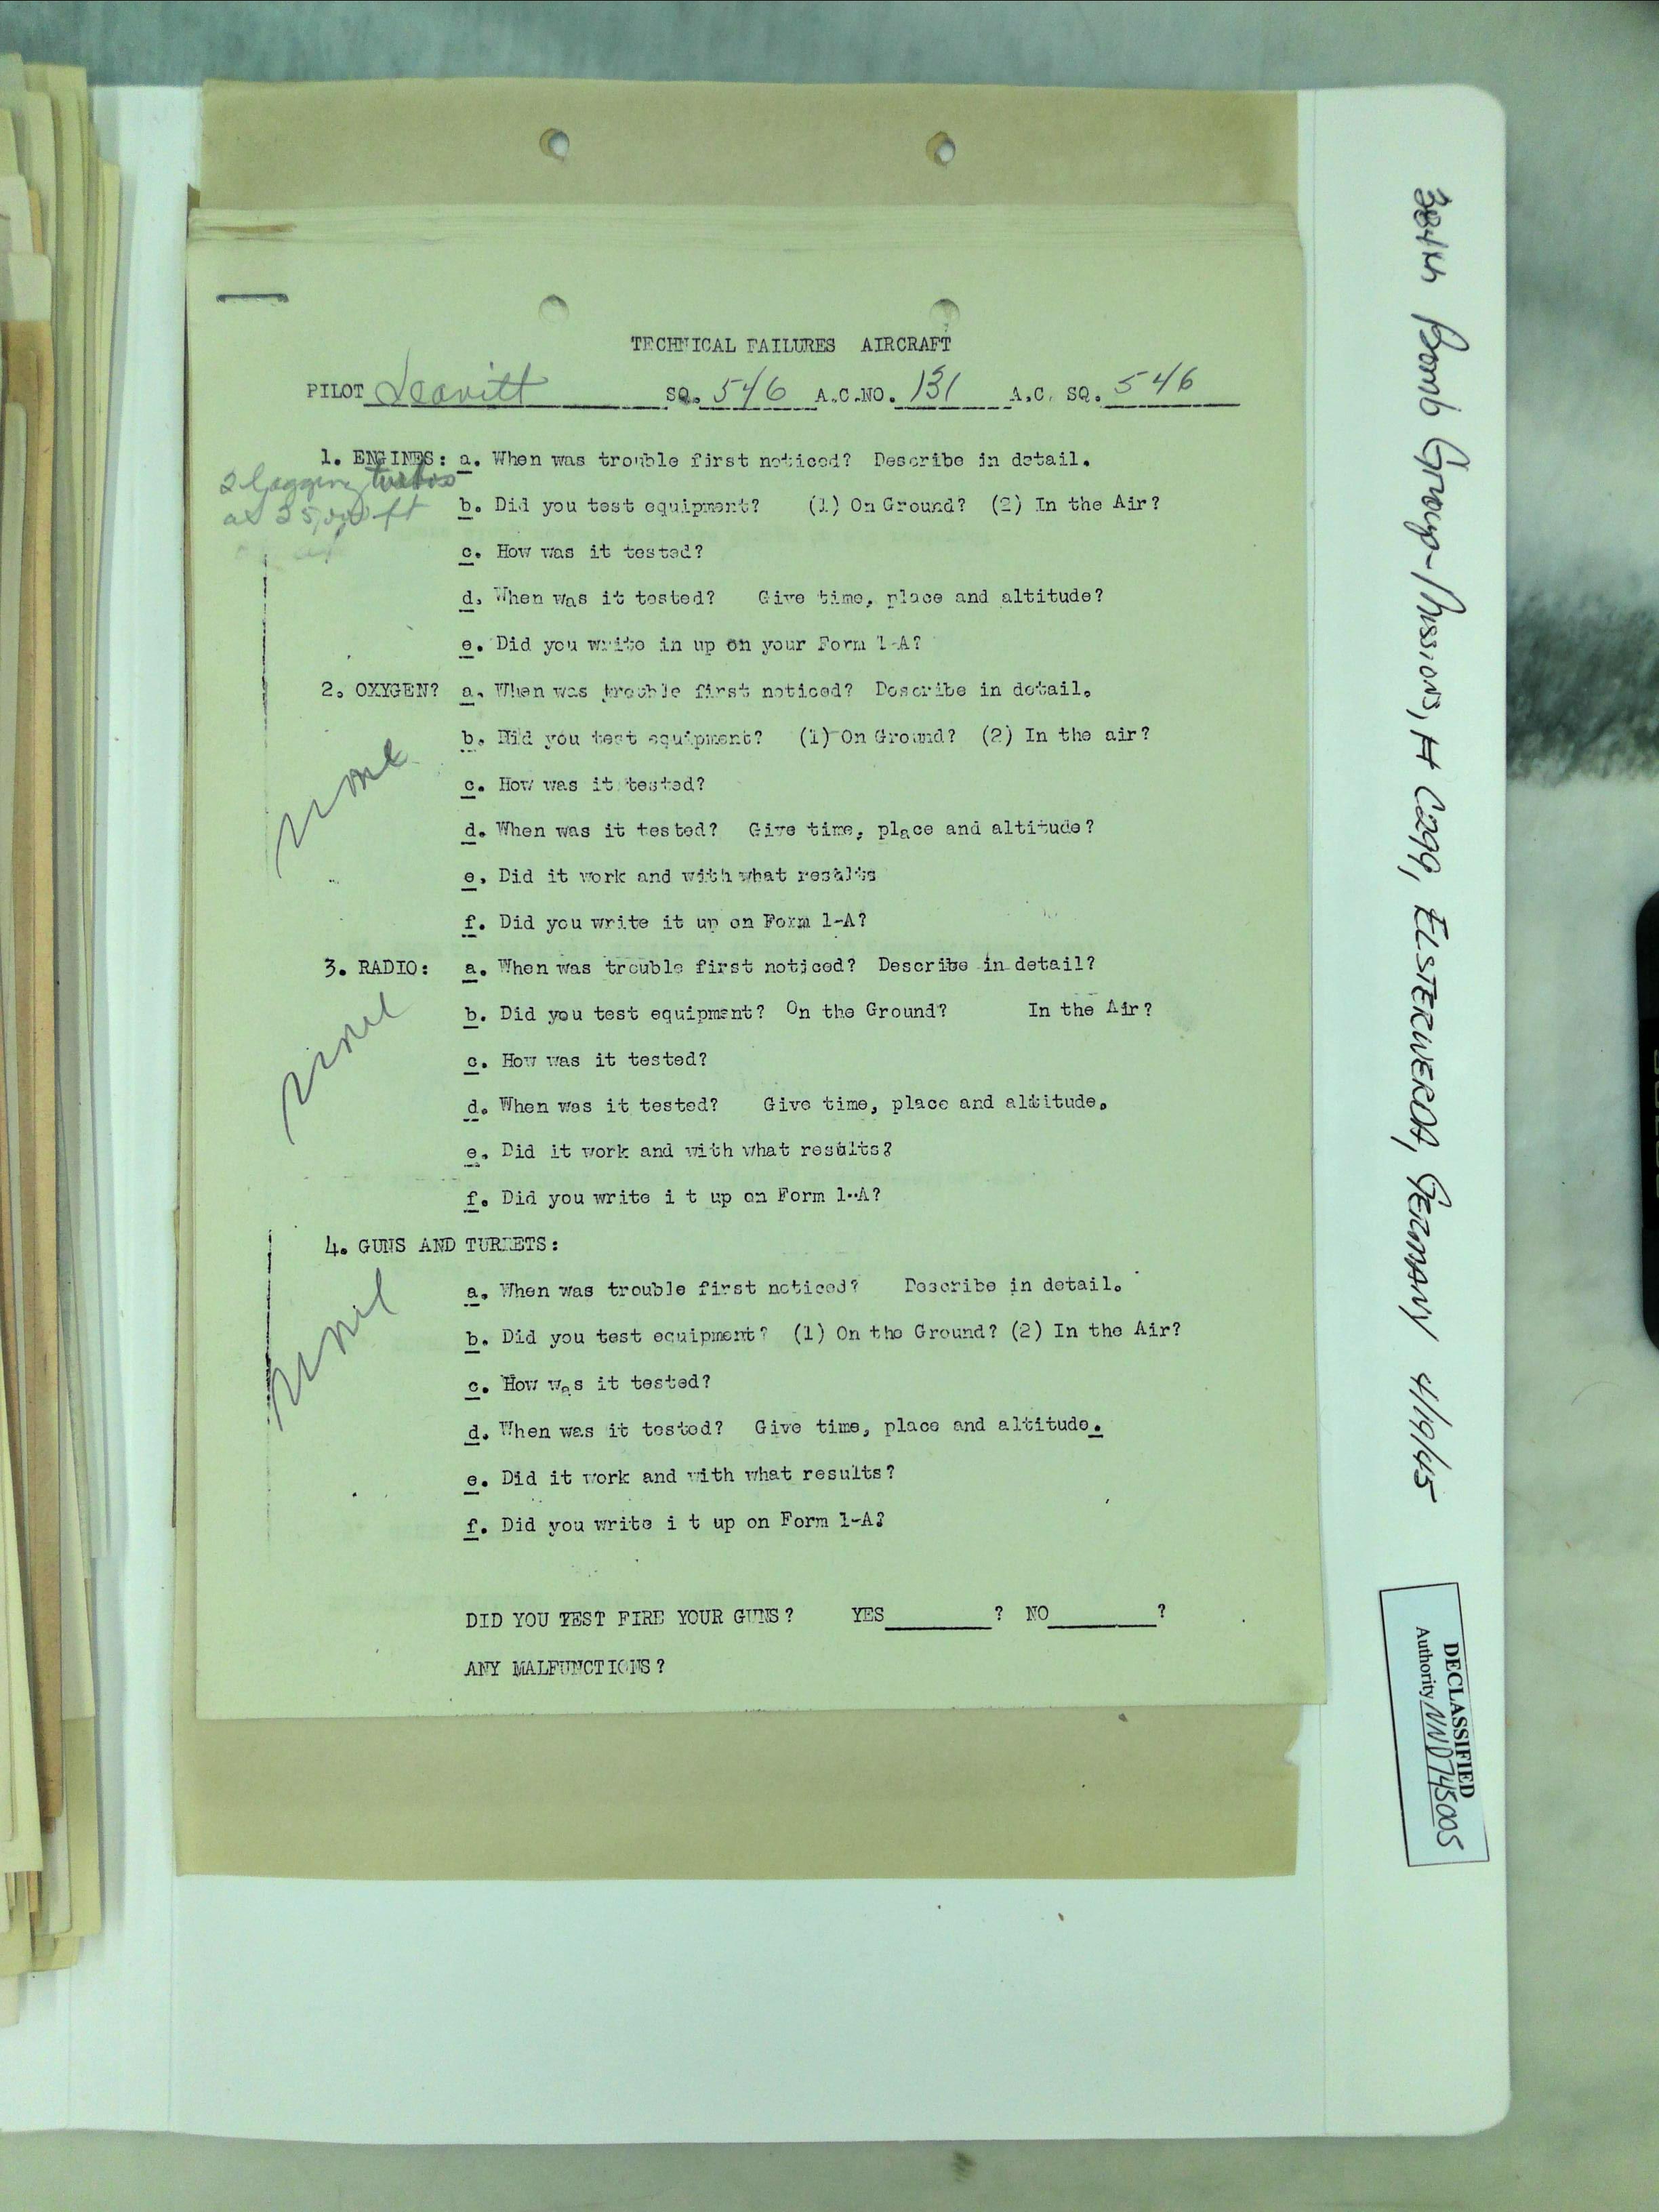 TECHNICAL FAILURES AIRCRAFT
PILOT Leavitt SQ. 546 A.C.NO. 131 A.C. SQ. 546
1. ENGINES: a. When was trouble first noticed? Describe in detail.
2 lagging turbos
at 25,000 ft
b. Did you test equipment? (1) On Ground? (2) In the Air?
c. How was it tested?
d. When was it tested? Give time, place and altitude?
e. Did you write in up on your Form 1-A?
2. OXYGEN? a. When was trouble first noticed? Describe in detail.
b. Did you test equipment? (1) On Ground? (2) In the air?
c. How was it tested?
d. When was it tested? Give time, place and altitude?
e. Did it work and with what results
f. Did you write it up on Form 1-A?
3. RADIO: a. When was trouble first noticed? Describe in detail?
b. Did you test equipment? On the Ground? In the Air?
c. How was it tested?
d. When was it tested? Give time, place and altitude.
e. Did it work and with what results?
f. Did you write i t up on Form 1-A?
4. GUNS AND TURRETS:
a. When was trouble first noticed? Describe in detail.
b. Did you test equipment? (1) On the Ground? (2) In the Air?
c. How was it tested?
d. When was it tested? Give time, place and altitude.
e. Did it work and with what results?
f. Did you write i t up on Form 1-A?
DID YOU TEST FIRE YOUR GUNS? YES ? NO ?
ANY MALFUNCTIONS?
384th Bomb Group-Missions, # C299, ELSTERWERDA, GERMANY 4/19/45
DECLASSIFIED
Authority NND 745005